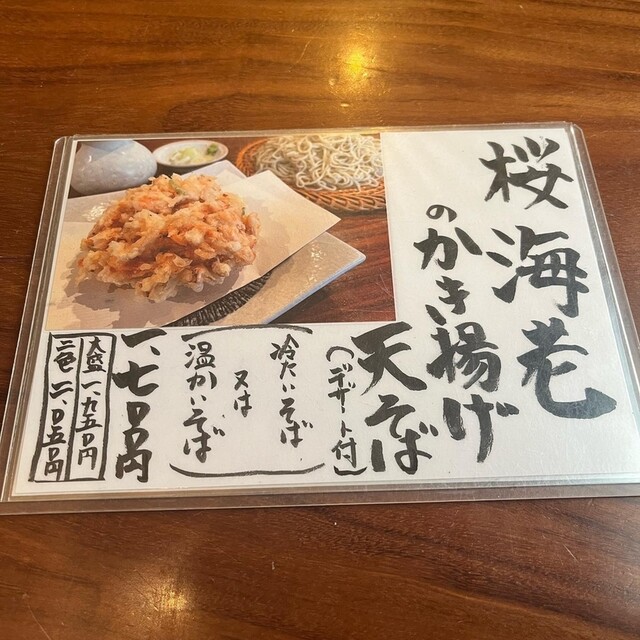 桜海老
のかき揚げ
天そば
(デザート付)
冷たいそば
又は
温かいそば
一、七〇〇円
大盛一、九五〇円
二色二、〇五〇円